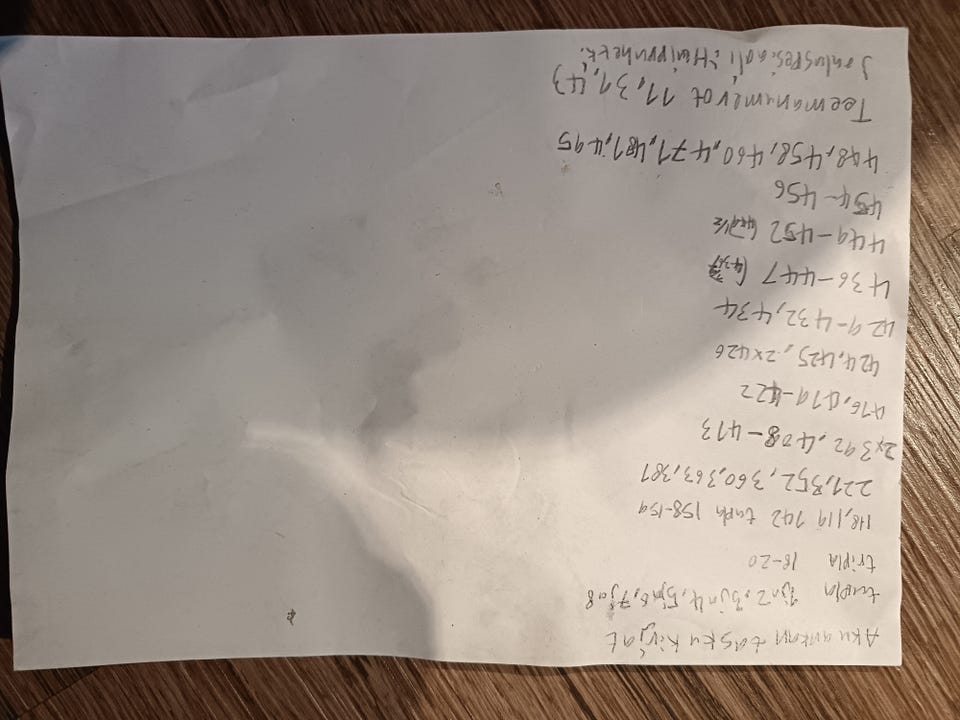 Aku ankan taskukirjat
tupla 1ja2, 3ja4, 5ja6, 7ja8
tripla 18-20
118,119 142 tupla 158-159
221,352, 360,363,381
2x392,408-413
416,419-422
424,425,2x426
429-432,434
436-447
449-452
454-456
448,458,460,471,481,495
Teemanumerot 11,31,43
Jouluspesiaali: Huippuhetk.